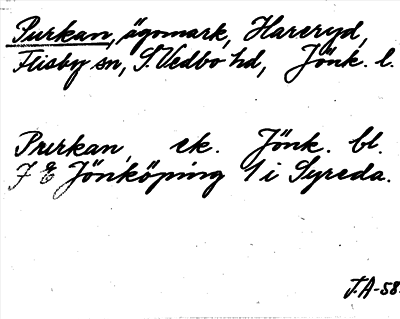 Purkan, ägomark, Hareryd,
Flisby sn, S. Vedbo hd, Jönk. l.
Purkan, ek. Jönk. bl.
7 E Jönköping 1 i Syreda.
J.A-58.